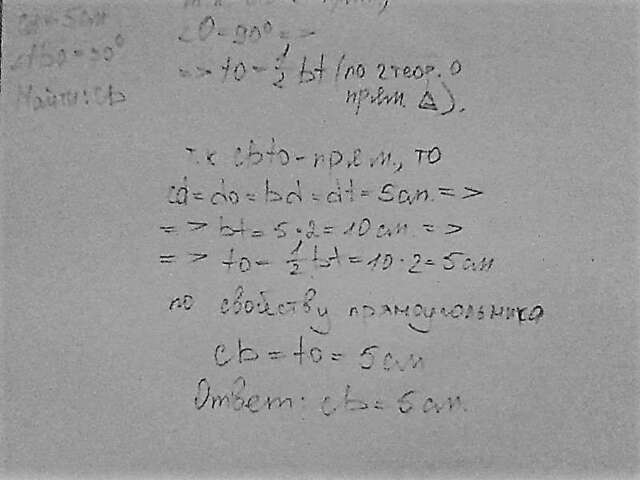 cd = 5см
Найти: cb
∠O = 90° =>
=> to = 1/2 bt (по 2 теор. о
прям. △).
т.к cbto - прям., то
cd = do = bd = dt = 5см. =>
=> bt = 5·2 = 10см. =>
=> to = 1/2 bt = 10·2 = 5см
по свойству прямоугольника
cb = to = 5см
Ответ: cb = 5см.